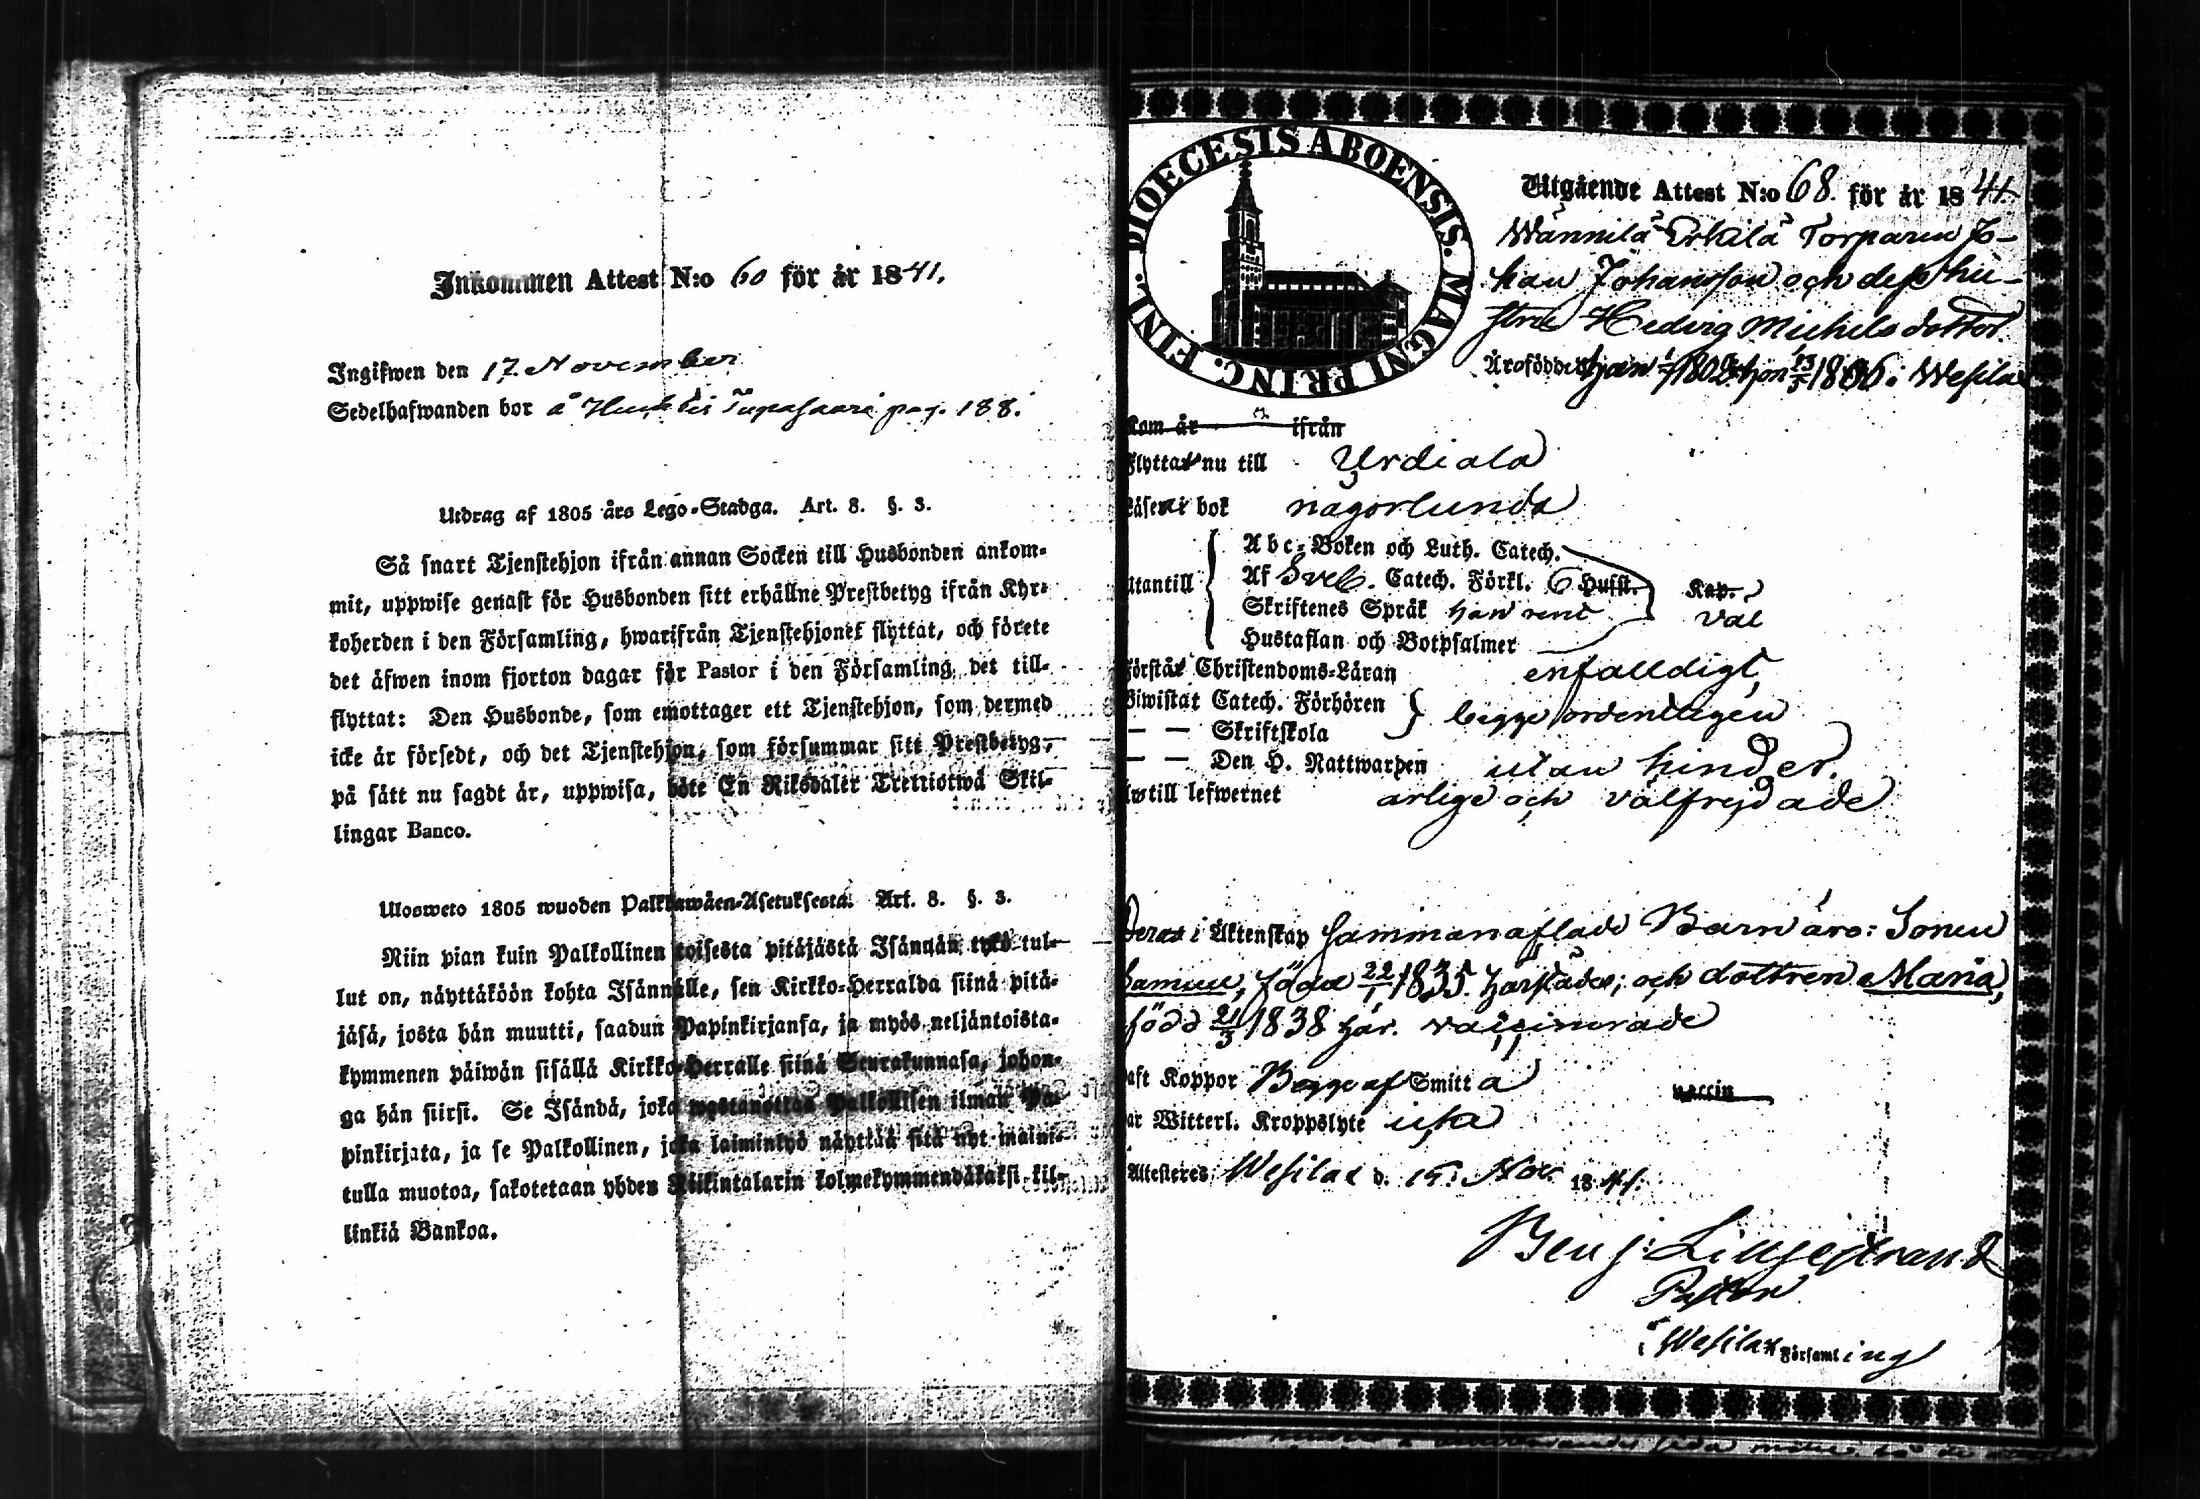 Inkommen Attest N:o 60 för år 1841.
Ingifwen den 17. November
Sedelhafwanden bor å Tupasaari pag. 188.
Utdrag af 1805 års Lego-Stadga. Art. 8. §. 3.
Så snart Tjenstehjon ifrån annan Socken till Husbonden ankom-
mit, uppwise genast för Husbonden sitt erhållne Prestbetyg ifrån Kyr-
koherden i den Församling, hwarifrån Tjenstehjonet flyttat, och förete
det äfwen inom fjorton dagar för Pastor i den Församling, det till-
flyttat: Den Husbonde, som emottager ett Tjenstehjon, som dermed
icke är försedt, och det Tjenstehjon, som försummar sitt Prestbetyg,
på sätt nu sagdt är, uppwisa, böte En Riksdaler Trettiotwå Skil-
lingar Banco.
Ulosweto 1805 wuoden Palkkawäen-Asetuksesta. Art. 8. §. 3.
Niin pian kuin Palkollinen toisesta pitäjästä Isännän tykö tul-
lut on, näyttäköön kohta Isännälle, sen Kirkko-Herralda siinä pitä-
jäsä, josta hän muutti, saadun Papinkirjansa, ja myös neljäntoista-
kymmenen päiwän sisällä Kirkko-Herralle siinä Seurakunnasa, johon-
ga hän siirsi. Se Isändä, joka wastanottaa Palkollisen ilman Pa-
pinkirjata, ja se Palkollinen, joka laiminlyö näyttää sitä nyt maini-
tulla muotoa, sakotetaan yhden Riikintalarin kolmekymmendäkaksi kil-
linkiä Bankoa.
DIOECESIS ABOENSIS. MAGNI PRINC. FINL.
Utgående Attest N:o 68. för år 1841.
Wännilä Erkilä Torparen Jo-
han Johansson och dess hu-
stru Hedvig Michelsdotter.
Äro födde han 1802 hon 13/5 1806 i Wesilax
Kom år ifrån
Flytta nu till Urdiala
Läsen i bok någorlunda
Utantill
Abc-Boken och Luth. Catech.
Af Sveb. Catech. Förkl. 6 Hufst. Kap.
Skriftenes Språk han rent väl
Hustaflan och Botpsalmer
Förstå Christendoms-Läran enfalldigt
Biwistat Catech. Förhören
— — Skriftskola begge ordentligen
— — Den H. Nattwarden utan hinder.
till lefwernet ärlige och välfrejdade
Deras i Äktenskap sammanaflade Barn äro: Sonen
Samuel, född 22/1 1835 härstädes; och dottren Maria,
född 21/3 1838 här. vaccinerade
Haft Koppor Begge af Smitta vaccin
Har Witterl. Kroppslyte icke
Attesteres; Wesilax d. 15. Nov. 1841.
Benj: Liljestrand
Pastor
i Wesilax Församling